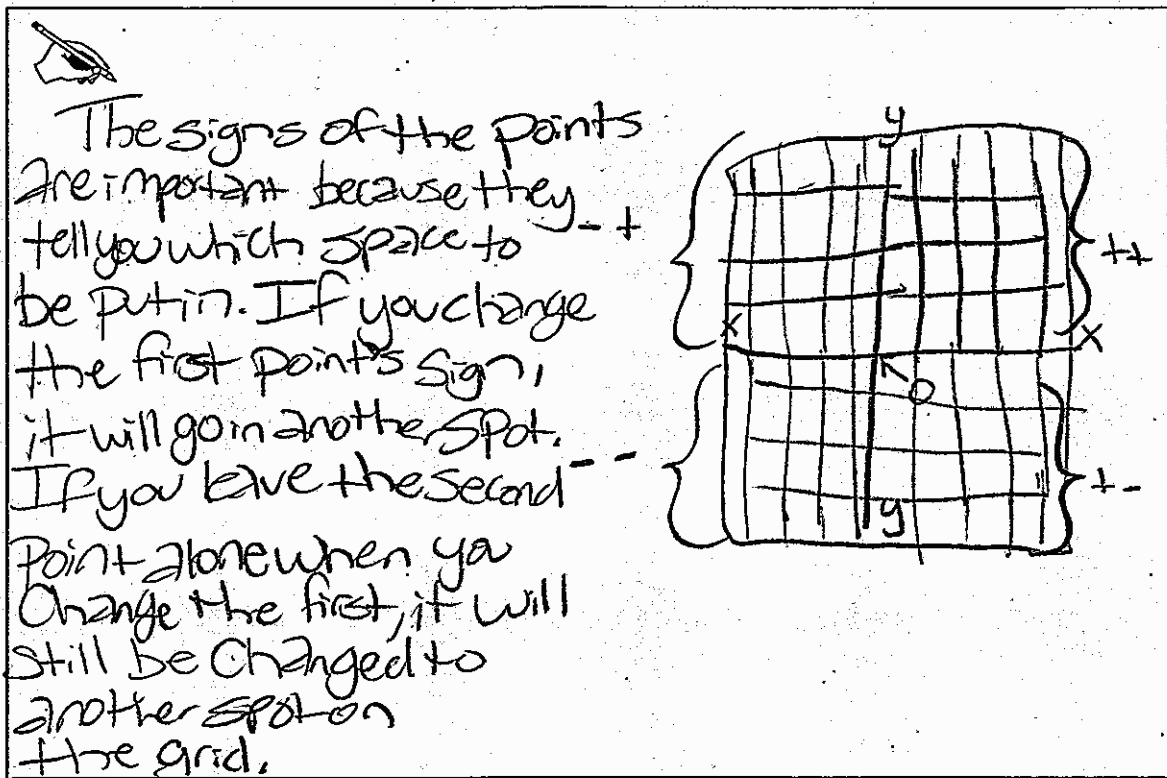 The signs of the points
are important because they
tell you which space to
be put in. If you change
the first point's sign,
it will go in another spot.
If you leave the second
point alone when you
Change the first, it will
still be Changed to
another spot on
the grid.
y
- +
++
x
x
O
- -
+ -
y